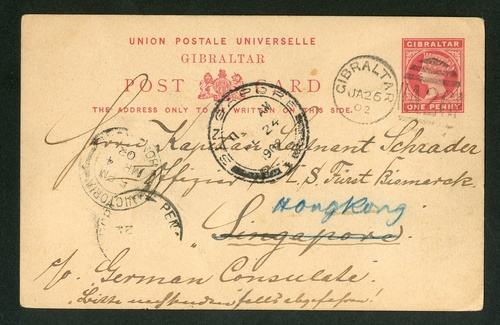 UNION POSTALE UNIVERSELLE
GIBRALTAR
POST CARD
THE ADDRESS ONLY TO BE WRITTEN ON THIS SIDE.
GIBRALTAR
ONE PENNY
GIBRALTAR
JA 26
02
SINGAPORE
AM
24
VICTORIA
HONG
5 PM
MR
PEN
Herrn Kapitän Leutnant Schrader
Offizier S. Fürst Bismarck
Hongkong
Singapore
c/o German Consulate.
Bitte